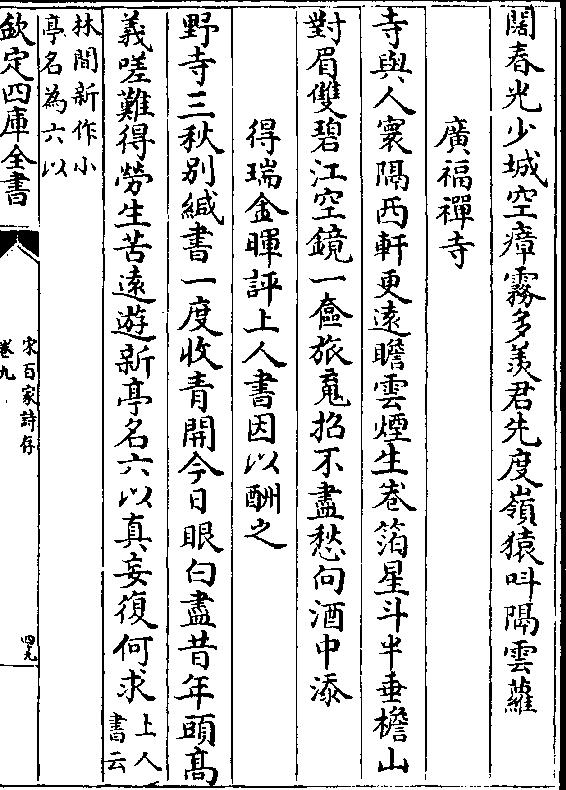 闊春光少城空瘴霧多羨君先度嶺猿叫隔雲蘿
廣福禪寺
寺與人寰隔西軒更遠瞻雲煙生卷箔星斗半垂檐山
對眉雙碧江空鏡一奩旅䰟招不盡愁向酒中添
得瑞金暉評上人書因以酬之
野寺三秋别緘書一度收青開今日眼白盡昔年頭髙
義嗟難得勞生苦遠遊新亭名六以真妄復何求上人
書云
林間新作小
亭名為六以
欽定四庫全書
宋百家詩存
卷九
四九